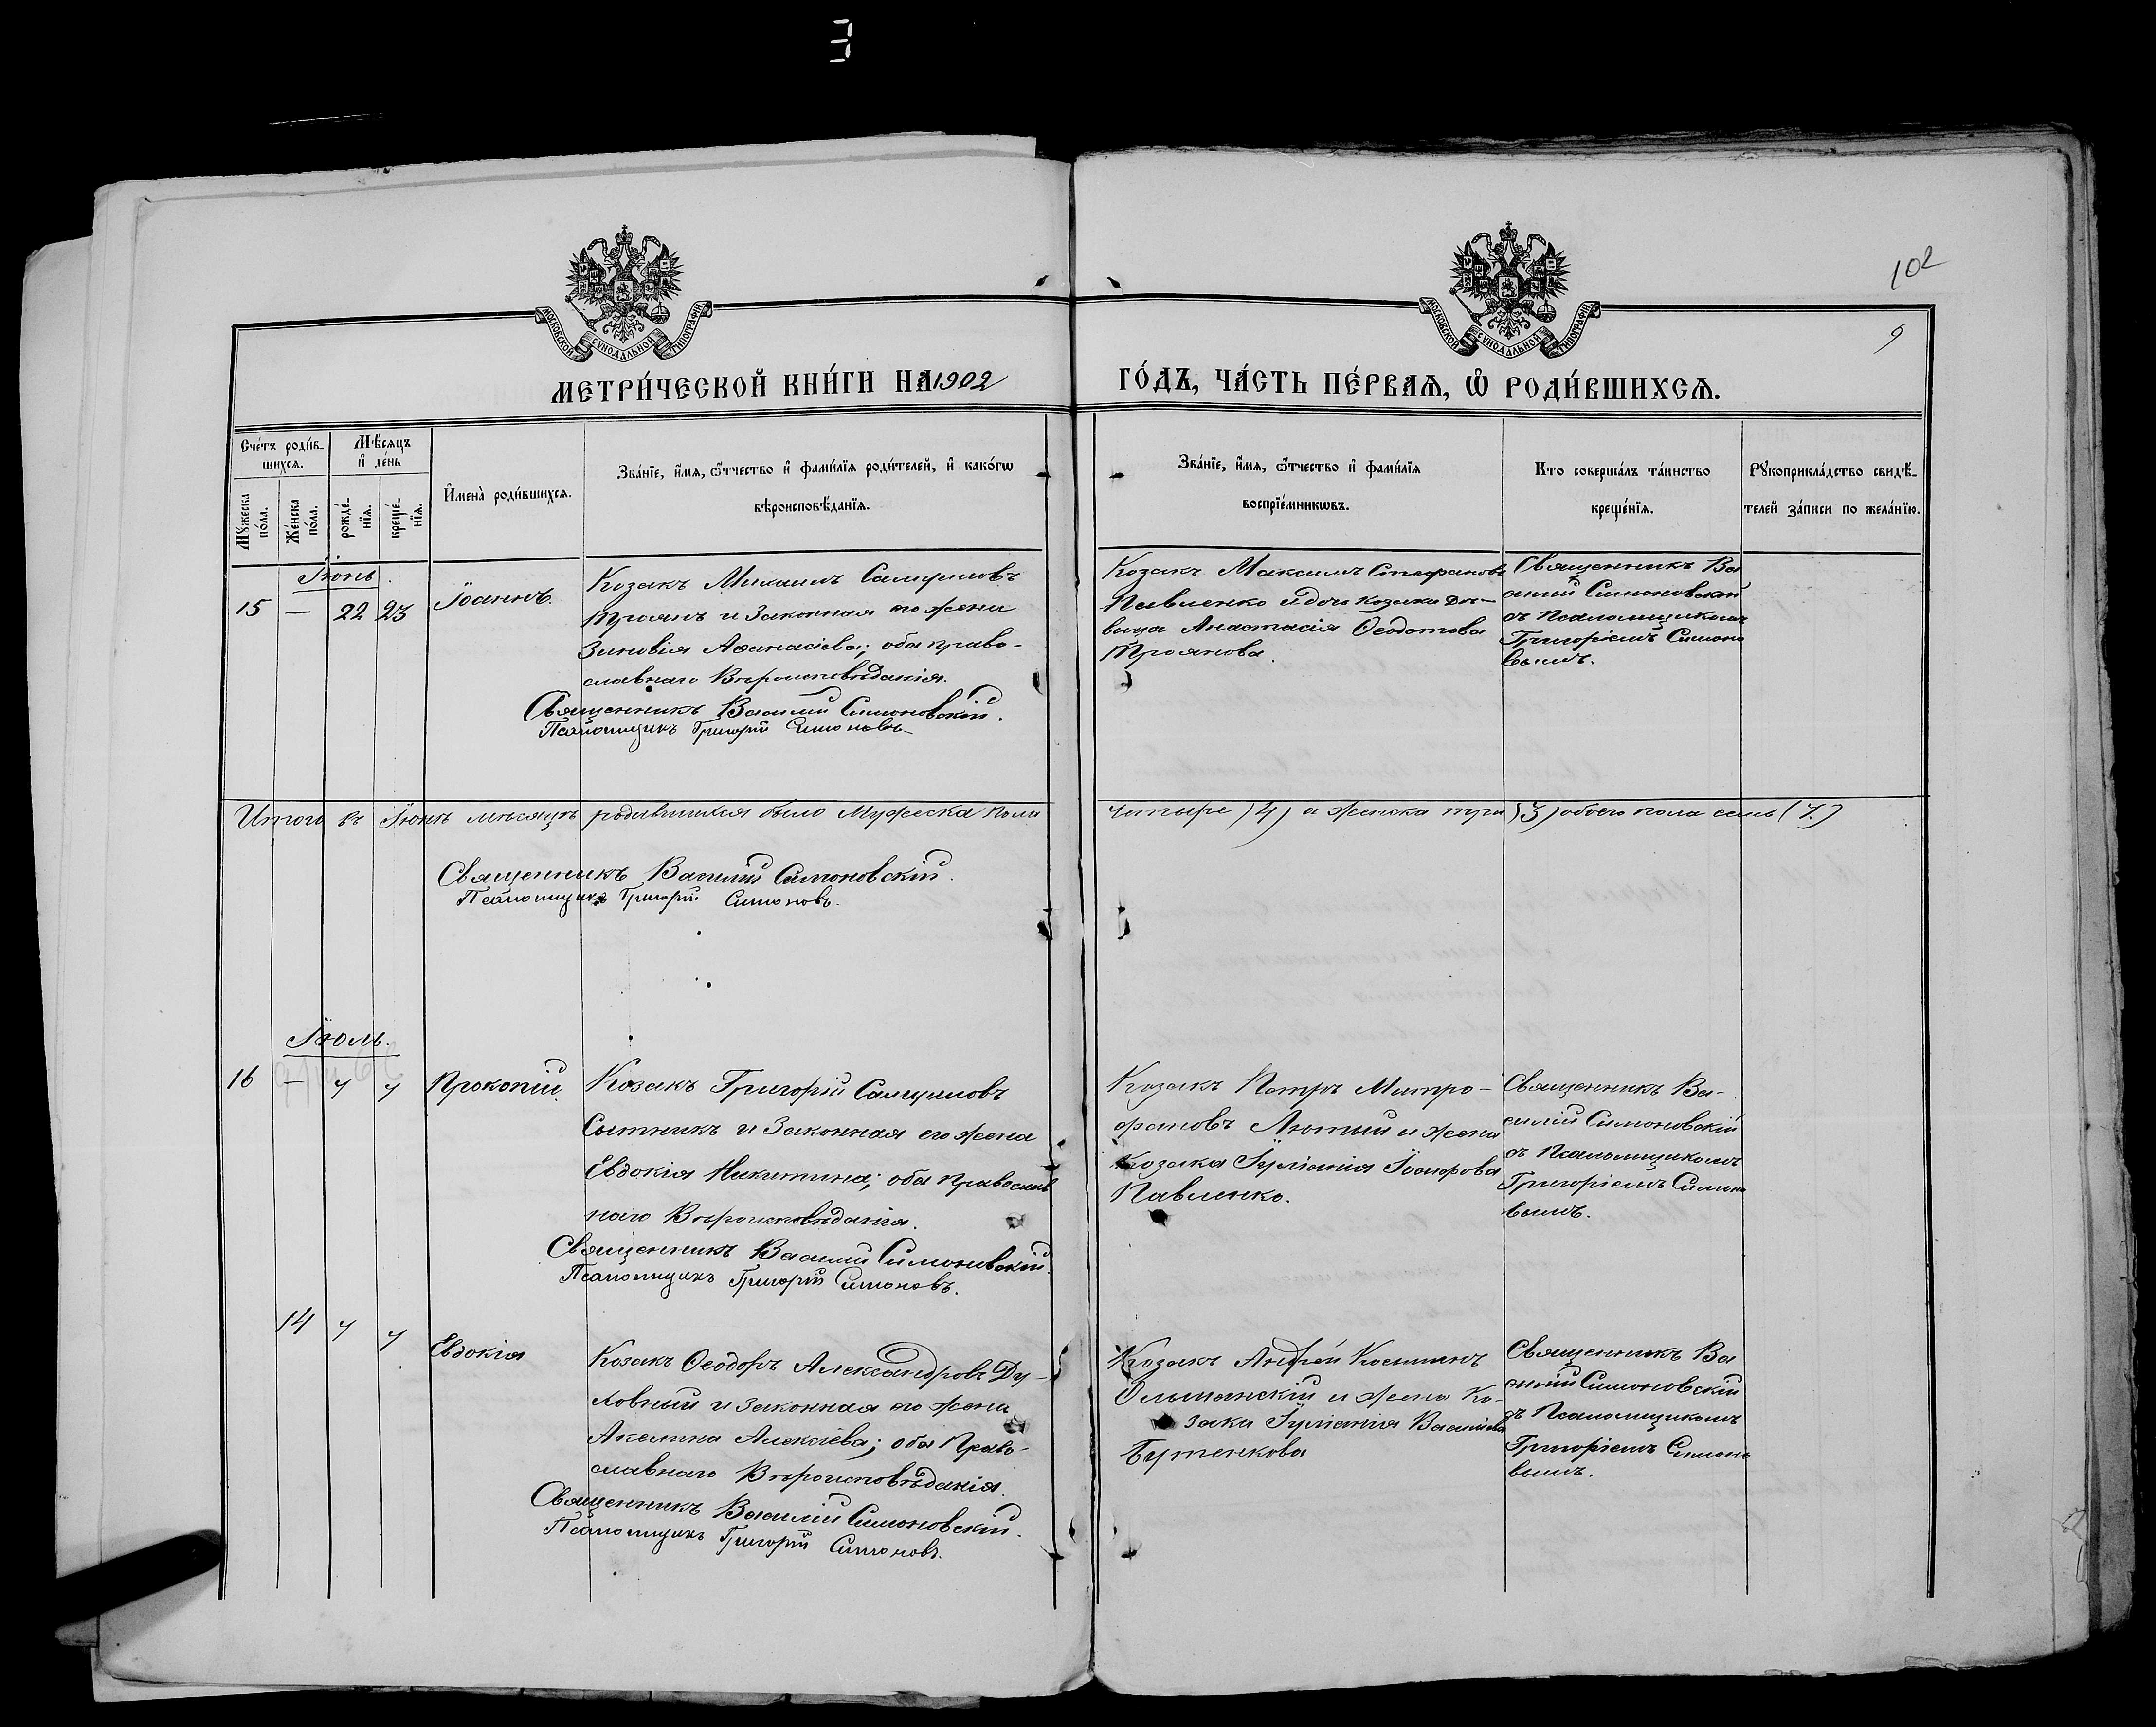 102
9
МОСКОВСКОЙ СѴНОДАЛЬНОЙ ТИПОГРАФІИ
МОСКОВСКОЙ СѴНОДАЛЬНОЙ ТИПОГРАФІИ
МЕТРИ́ЧЕСКОЙ КНИ́ГИ НА 1902
ГО́ДЪ, ЧА́СТЬ ПЕ́РВАѦ, Ѡ РОДИ́ВШИХСѦ.
Сче́тъ роди́в-
шихсѧ.
Мѣ́сѧцъ
и҆ де́нь
Мꙋ́жеска
по́ла.
Же́нска
по́ла.
рожде́-
нїѧ.
креще́-
нїѧ.
И҆мена̀ роди́вшихсѧ.
Зва́нїе, и҆́мѧ, ѻ҆́тчество и҆ фами́лїѧ роди́телей, и҆ како́гѡ
вѣроисповѣ́данїѧ.
Зва́нїе, и҆́мѧ, ѻ҆́тчество и҆ фами́лїѧ
воспрїе́мникѡвъ.
Кто соверша́лъ та́инство
креще́нїѧ.
Рꙋкоприкла́дство свидѣ́-
телей за́писи по жела́нїю.
Іюнь
15 — 22 23
Іоаннъ.
Козакъ Михаилъ Самуиловъ
Троянъ и Законная его жена
Зиновія Аѳанасіева; оба право-
славнаго Вѣроисповѣданія.
Священникъ Василій Симоновскій.
Псаломщикъ Григорій Симоновъ
Козакъ Максимъ Стефановъ
Павленко и дочь Козака Дѣ-
вица Анастасія Ѳеодотова
Троянова.
Священникъ Ва
силій Симоновскій
съ Псаломщикомъ
Григоріемъ Симоно
вымъ.
Итого въ Іюнѣ мѣсяцѣ родившихся было Мужеска пола
четыре (4) а Женска три (3) обоего пола семь (7.)
Священникъ Василій Симоновскій.
Псаломщикъ Григорій Симоновъ.
Іюль.
16 — 7 7
Прокопій.
Козакъ Григорій Самуиловъ
Сытникъ и Законная его жена
Евдокія Никитина; оба Православ
наго Вѣроисповѣданія.
Священникъ Василій Симоновскій.
Псаломщикъ Григорій Симоновъ.
Козакъ Петръ Митро-
фановъ Лютый и жена
Козака Іуліанія Іосифова
Павленко.
Священникъ Ва-
силій Симоновскій
съ Псаломщикомъ
Григоріемъ Симоно
вымъ.
14 7 7
Евдокія
Козакъ Ѳеодоръ Александровъ Ду-
ховный и законная его жена
Акелина Алексіева; оба Право-
славнаго Вѣроисповѣданія.
Священникъ Василій Симоновскій.
Псаломщикъ Григорій Симоновъ.
Козакъ Андрей Костинъ
Ольшанскій и жена Ко-
зака Іуліанія Василіева
Бутенкова
Священникъ Ва
силій Симоновскій
съ Псаломщикомъ
Григоріемъ Симоно
вымъ.